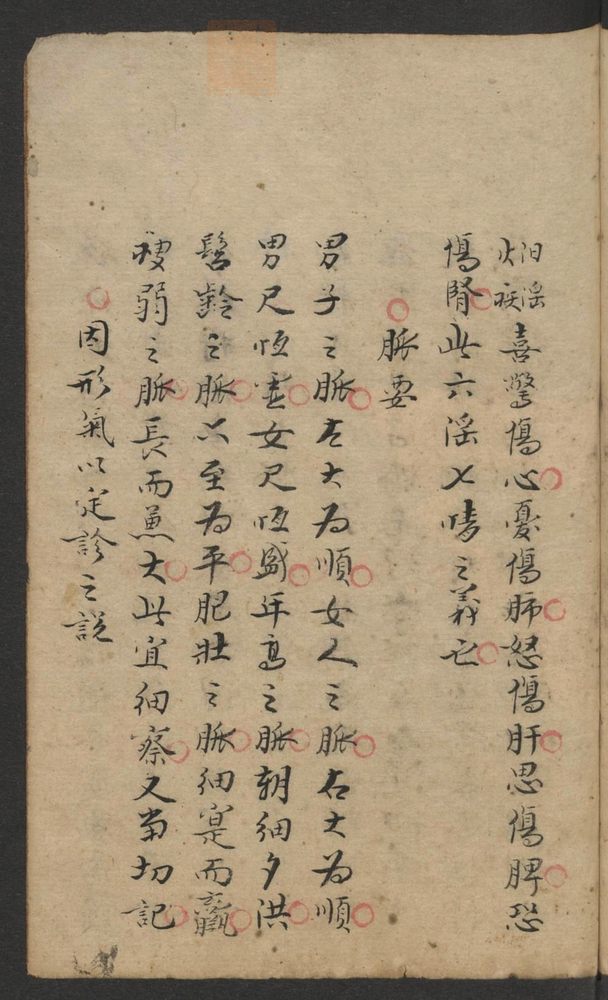 汨淫
火疾
喜驚傷心憂傷肺怒傷肝思傷脾恐
傷腎此六淫七情之義也
脈要
男子之脈左大為順女人之脈右大為順
男尺恆虛女尺恆盛年高之脈朝細夕洪
髫齡之脈六至為平肥壯之脈細寔而羸
瘦弱之脈長而兼大此宜細察又當切記
因形氣以定診之說